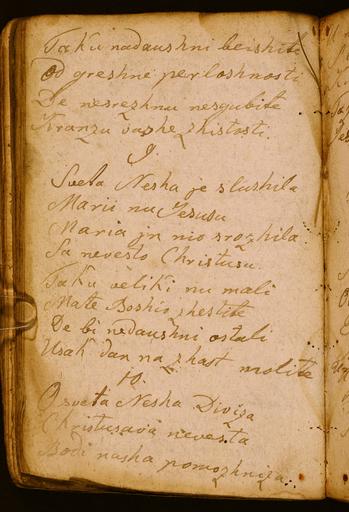 Taku nadaushni beishite
Od greshne perloshnosti
De nesrezhnu nesgubite
Kranzu vashe zhistosti.
9.
Sveta Nesha je slushila
Marii nu Jesusu
Maria jn nio srozhila
Sa nevesto Christusu.
Taku veliki nu mali
Mate Boshio zhestite
De bi nedaushni ostali
Usak dan na zhast molite
10.
O sveta Nesha Diviza
Christusava nevesta
Bodi nasha pomozhniza.